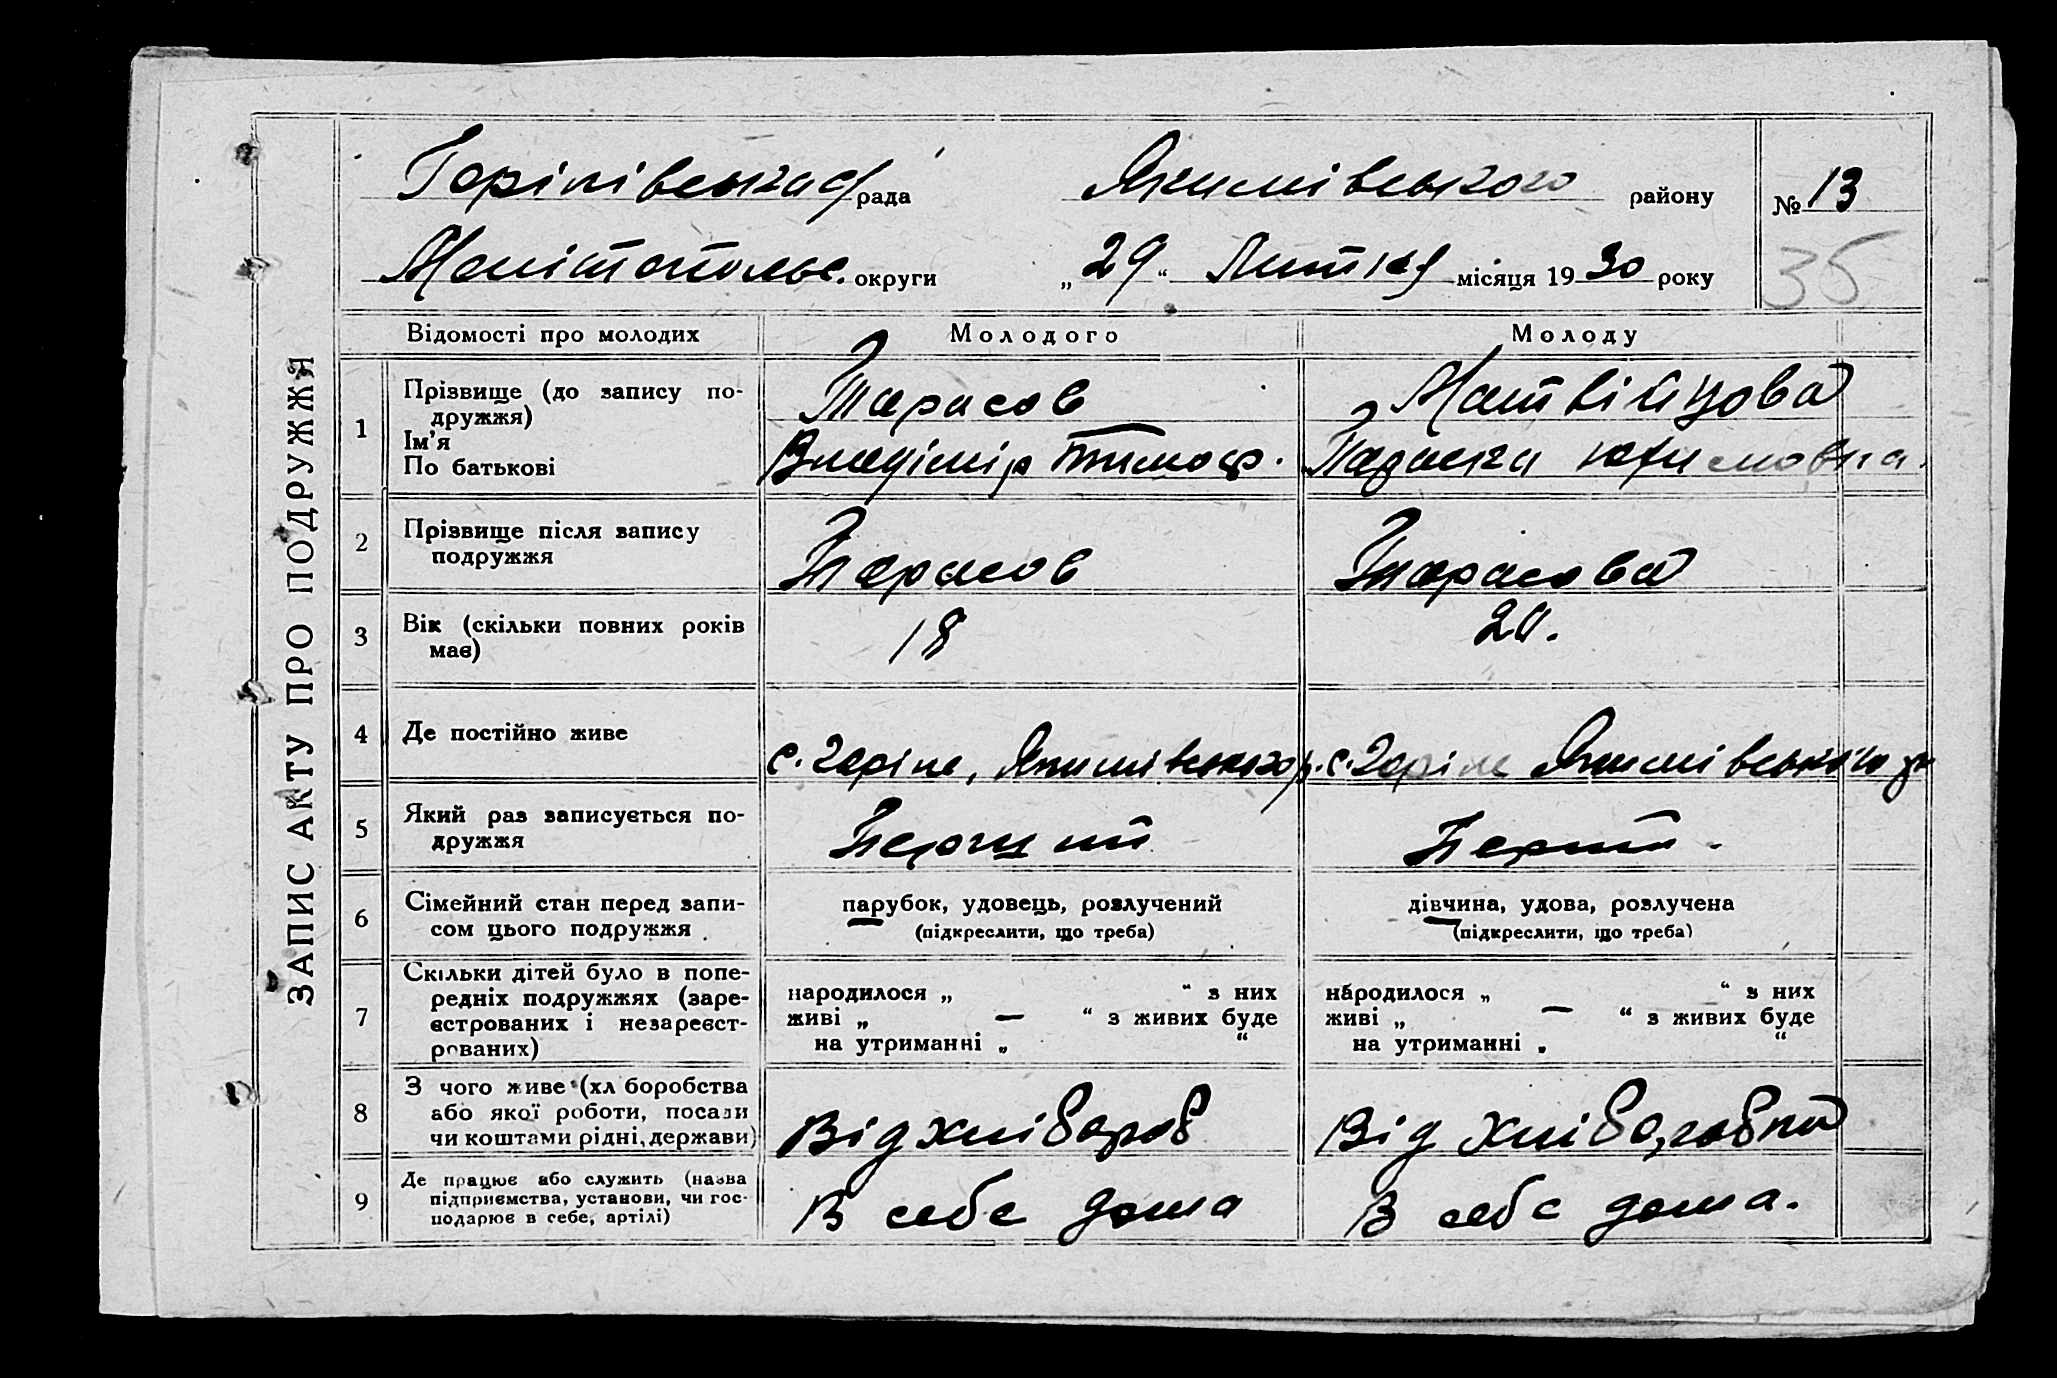 ЗАПИС АКТУ ПРО ПОДРУЖЖЯ
Горілівська рада Якимівського району № 13
Мелітопольс. округи „29“ Лютня місяця 1930 року
35
Відомості про молодих Молодого Молоду
1 Прізвище (до запису по-
дружжя)
Ім'я
По батькові
Тарасов
Владімір Тимоф.
Матвійцова
Параска Юхимовна.
2 Прізвище після запису
подружжя
Тарасов Тарасова
3 Вік (скільки повних років
має)
18 20.
4 Де постійно живе
с. Горіле, Якимівського р. с. Горіле Якимівського
5 Який раз записується по-
дружжя
Перший Перший.
6 Сімейний стан перед запи-
сом цього подружжя
парубок, удовець, розлучений
(підкреслити, що треба)
дівчина, удова, розлучена
(підкреслити, що треба)
7 Скільки дітей було в попе-
редніх подружжях (заре-
єстрованих і незареєст-
рованих)
народилося „ “ з них
живі „ — “ з живих буде
на утриманні „ “
народилося „ “ з них
живі „ — “ з живих буде
на утриманні „ “
8 З чого живе (хліборобства
або якої роботи, посади
чи коштами рідні, держави)
Від хлібороб Від хліборобна
9 Де працює або служить (назва
підприємства, установи, чи гос-
подарює в себе, артілі)
В себе дома В себе дома.